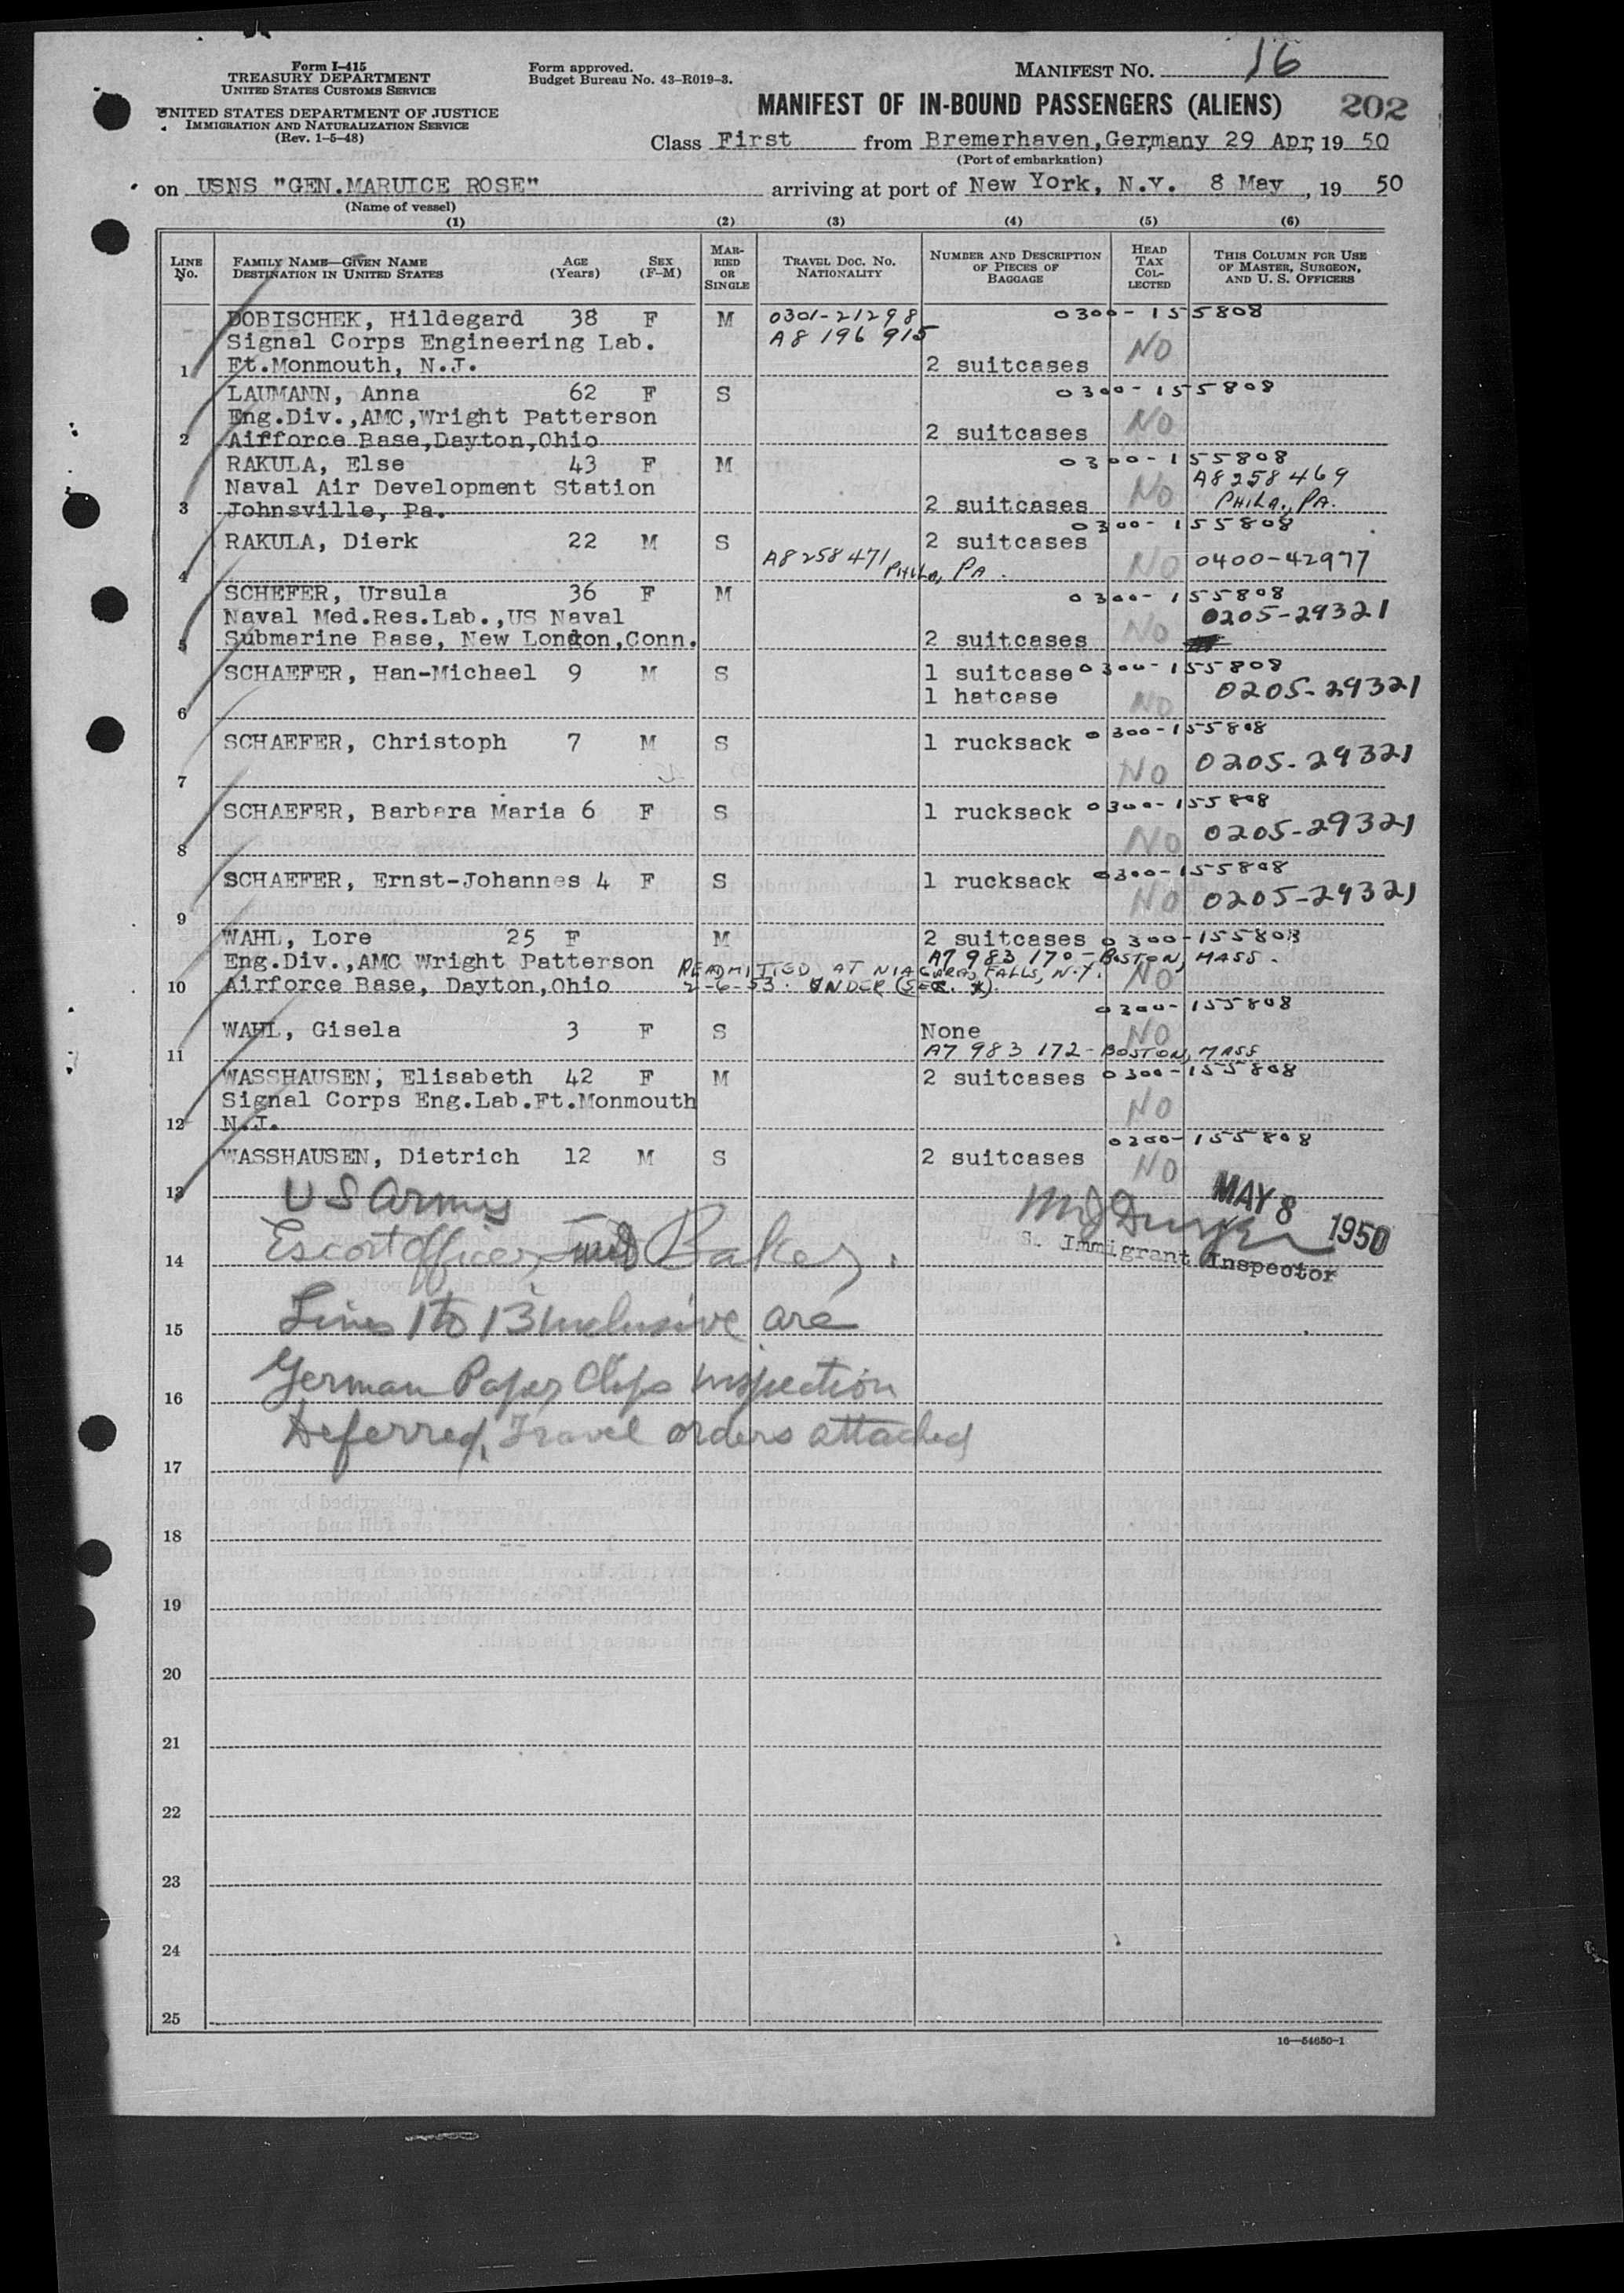 Form I-415
TREASURY DEPARTMENT
UNITED STATES CUSTOMS SERVICE
UNITED STATES DEPARTMENT OF JUSTICE
IMMIGRATION AND NATURALIZATION SERVICE
(Rev. 1-5-48)
Form approved.
Budget Bureau No. 43-R019-3.
MANIFEST No. 16
MANIFEST OF IN-BOUND PASSENGERS (ALIENS) 202
Class First from Bremerhaven, Germany 29 Apr, 19 50
(Port of embarkation)
on USNS "GEN.MARUICE ROSE" arriving at port of New York, N.Y. 8 May, 19 50
(Name of vessel)
(1) (2) (3) (4) (5) (6)
LINE No. FAMILY NAME—GIVEN NAME DESTINATION IN UNITED STATES AGE (Years) SEX (F-M) MARRIED OR SINGLE TRAVEL DOC. NO. NATIONALITY NUMBER AND DESCRIPTION OF PIECES OF BAGGAGE HEAD TAX COLLECTED THIS COLUMN FOR USE OF MASTER, SURGEON, AND U. S. OFFICERS
DOBISCHEK, Hildegard 38 F M 0301-21298 0300-155808
Signal Corps Engineering Lab. A8 196 915 NO
1 Ft.Monmouth, N.J. 2 suitcases
LAUMANN, Anna 62 F S 0300-155808
Eng.Div.,AMC,Wright Patterson NO
2 Airforce Base,Dayton,Ohio 2 suitcases
RAKULA, Else 43 F M 0300-155808
Naval Air Development Station NO A8258469
3 Johnsville, Pa. 2 suitcases PHILA., PA.
RAKULA, Dierk 22 M S 2 suitcases 0300-155808
4 A8258471 PHILA, PA. NO 0400-42977
SCHEFER, Ursula 36 F M 0300-155808
Naval Med.Res.Lab.,US Naval 0205-29321
5 Submarine Base, New London,Conn. 2 suitcases NO
SCHAEFER, Han-Michael 9 M S 1 suitcase 0300-155808
6 1 hatcase NO 0205-29321
SCHAEFER, Christoph 7 M S 1 rucksack 0300-155808
7 NO 0205-29321
SCHAEFER, Barbara Maria 6 F S 1 rucksack 0300-155808
8 NO 0205-29321
SCHAEFER, Ernst-Johannes 4 F S 1 rucksack 0300-155808
9 NO 0205-29321
WAHL, Lore 25 F M 2 suitcases 0300-155808
Eng.Div.,AMC Wright Patterson A7 983 170 - BOSTON, MASS.
READMITTED AT NIAGARA FALLS, N.Y. NO
10 Airforce Base, Dayton,Ohio 2-6-53. UNDER (SEC. )
0300-155808
WAHL, Gisela 3 F S None NO
11 A7 983 172 - BOSTON, MASS
WASSHAUSEN, Elisabeth 42 F M 2 suitcases 0300-155808
Signal Corps Eng.Lab.Ft.Monmouth NO
12 N.J.
0300-155808
WASSHAUSEN, Dietrich 12 M S 2 suitcases NO
13 US Army MAY 8 1950
14 Escort Officer Baker. U. S. Immigrant Inspector
15 Lines 1 to 13 inclusive are
16 German Paper Clips inspection
17 Deferred, Travel orders attached
18
19
20
21
22
23
24
25
16—54650-1